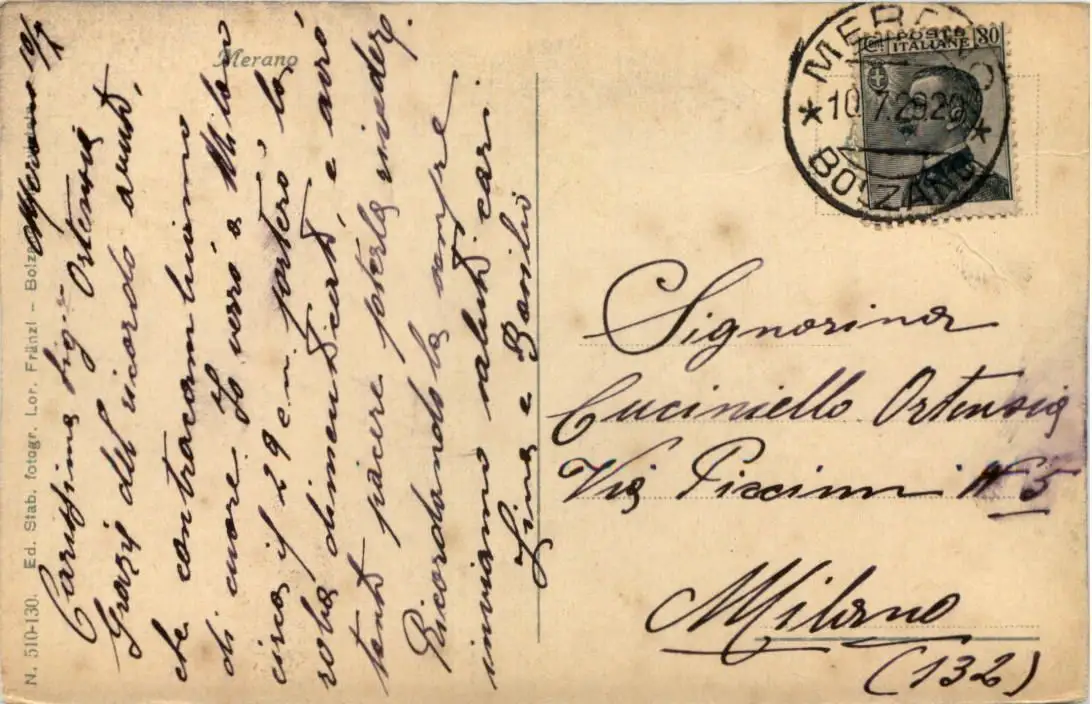 Merano
N. 510-130. Ed. Stab. fotogr. Lor. Fränzl – Bolza
Merano 10/7
Carissima Sig.na Ortensia
Grazie del ricordo avuto,
che contracambiamo
di cuore. Io verrò a Milano
circa il 29 c.m. porterò la
roba dimenticata, e avrò
tanto piacere poterla riveder.
Ricordandola sempre
inviamo saluti cari
e Basilio
MERANO
10.7.29.20
BOLZANO
POSTE
ITALIANE
30
Signorina
Cuciniello Ortensia
Via Piccinni N 5
Milano
(132)